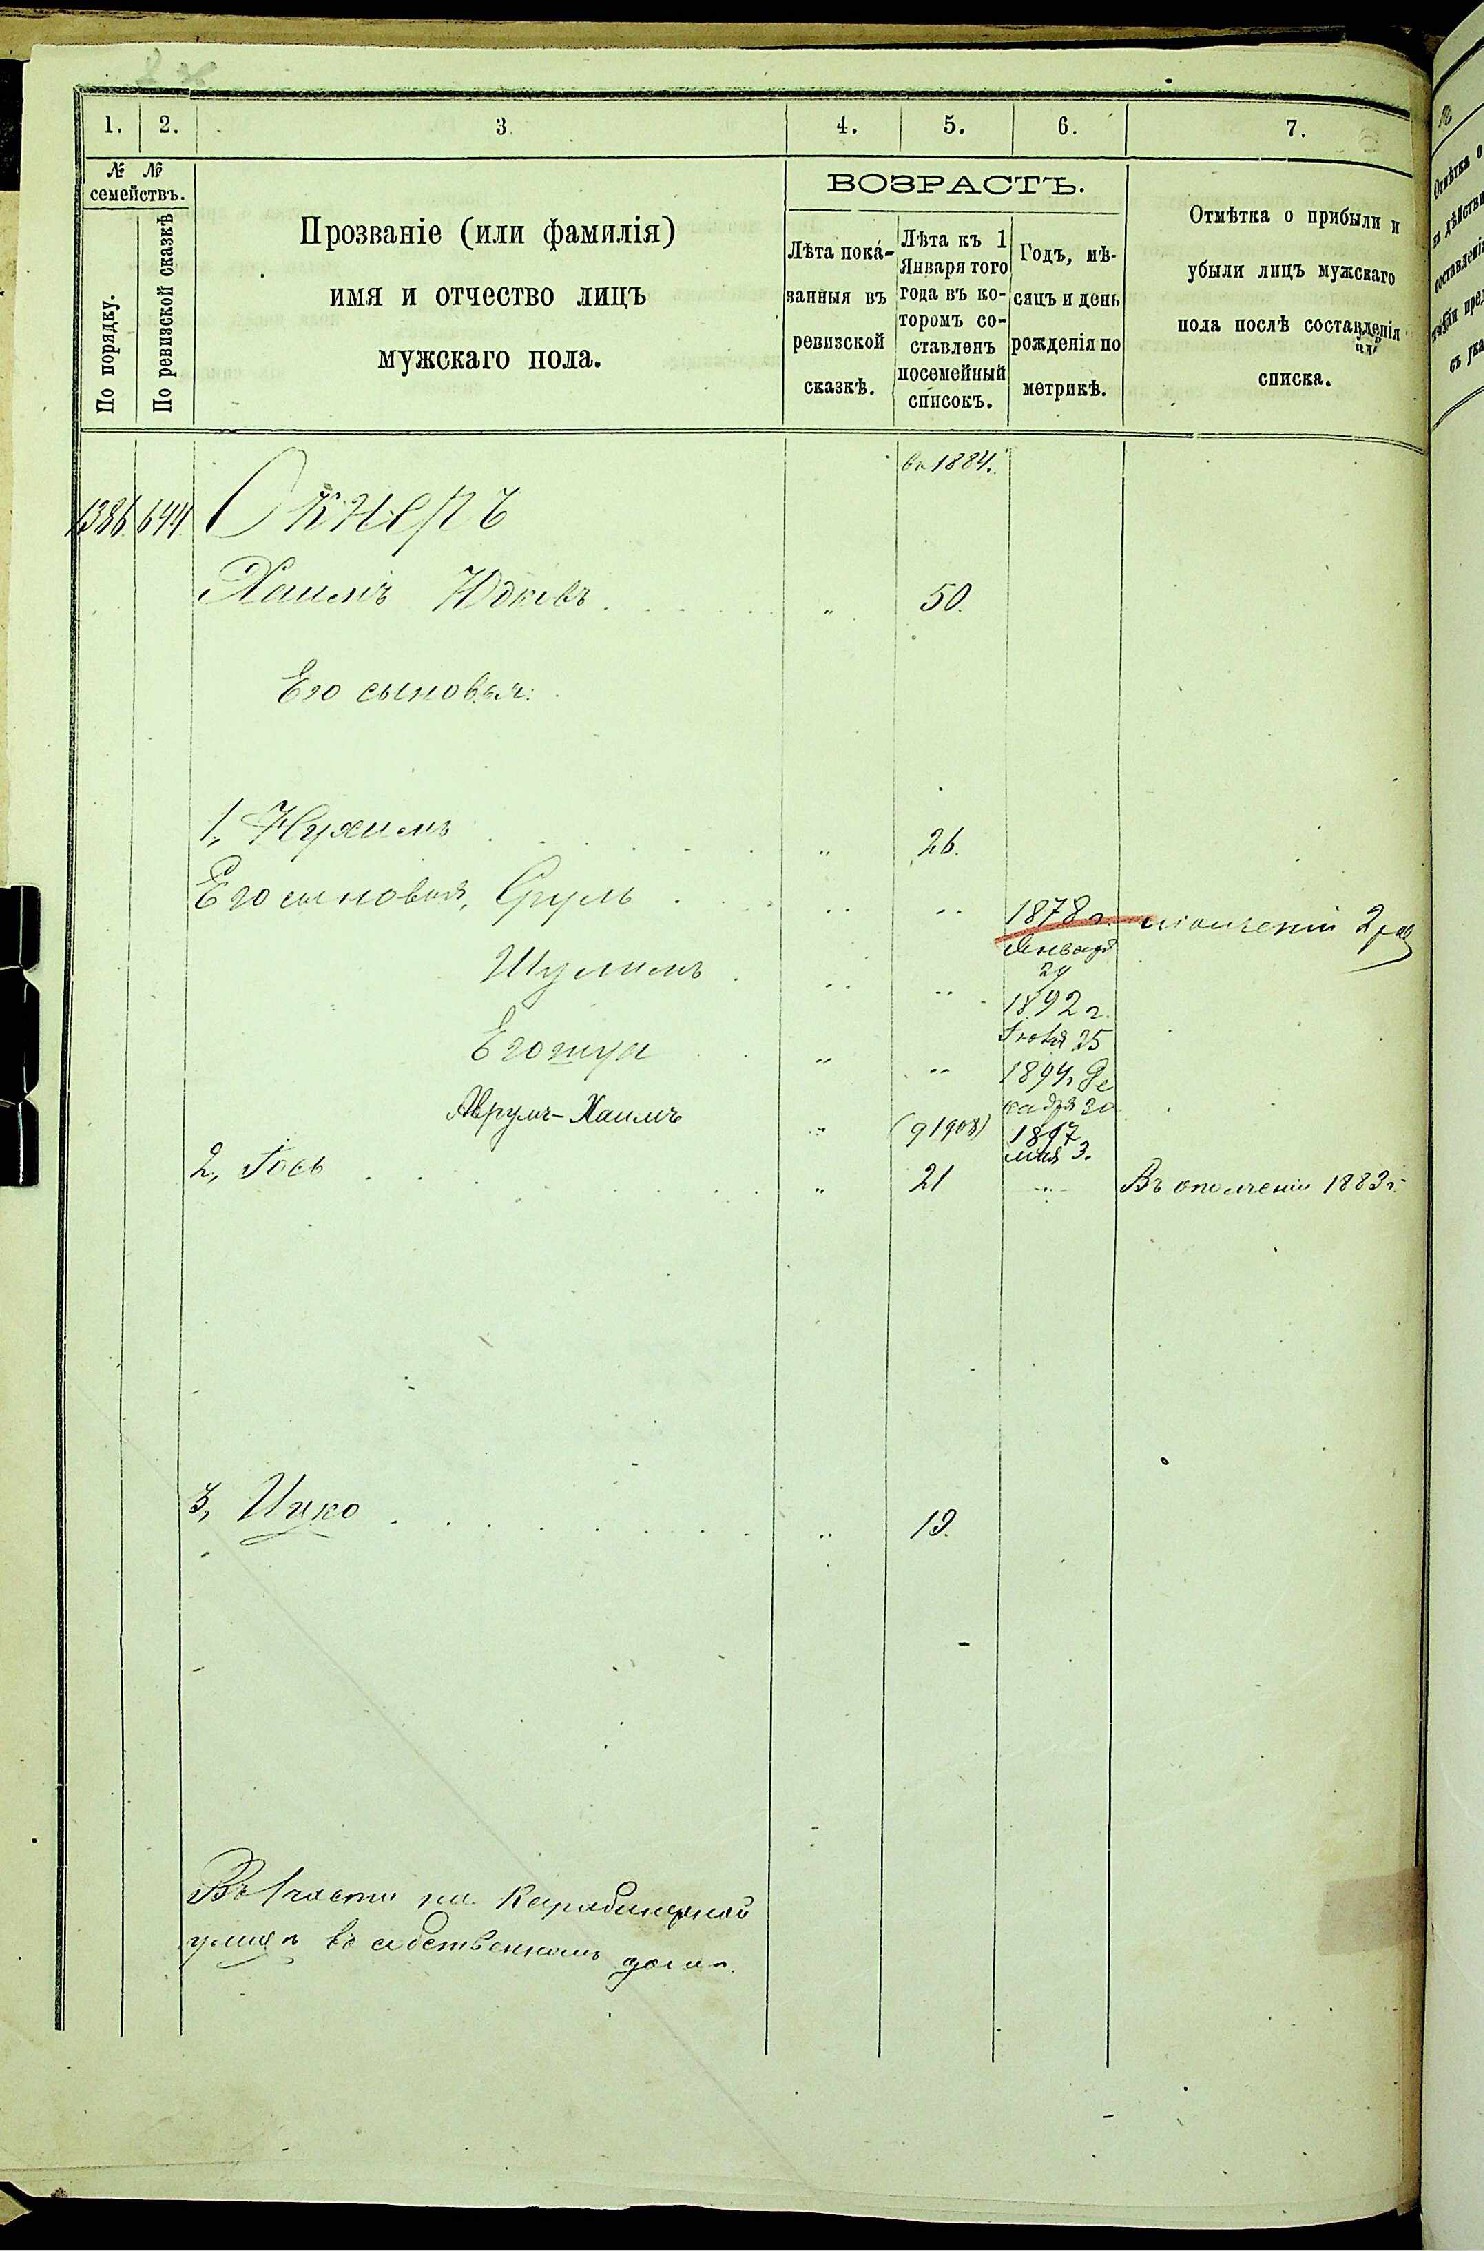 1. 2. 3. 4. 5. 6. 7.
№ №
семействъ.
По порядку.
По ревизской сказкѣ
Прозваніе (или фамилія)
имя и отчество лицъ
мужскаго пола.
ВОЗРАСТЪ.
Лѣта пока-
занныя въ
ревизской
сказкѣ.
Лѣта къ 1
Января того
года въ ко-
торомъ со-
ставленъ
посемейный
списокъ.
Годъ, мѣ-
сяцъ и день
рожденія по
метрикѣ.
Отмѣтка о прибыли и
убыли лицъ мужскаго
пола послѣ составленія
списка.
въ 1884.
1386. 644 Окнеръ
Хаимъ Юдковъ 50.
Его сыновья:
1, Нухимъ 26.
Его сыновья, Сруль 1878 г. 2
Января
29
Шулимъ 1892 г.
Іюля 25
1894 г. Де
кабря 20
Аврумъ-Хаимъ (9 1908) 1897
мая 3.
2, Іось 21 Въ ополченіи 1883 г.
3, Ицко 19.
Въ 1 части на Карабинерной
улицѣ въ собственномъ домѣ.